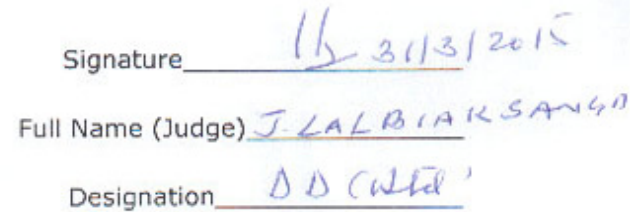 Signature 31/3/2015
Full Name (Judge) J. LALBIAKSANGA
Designation DD